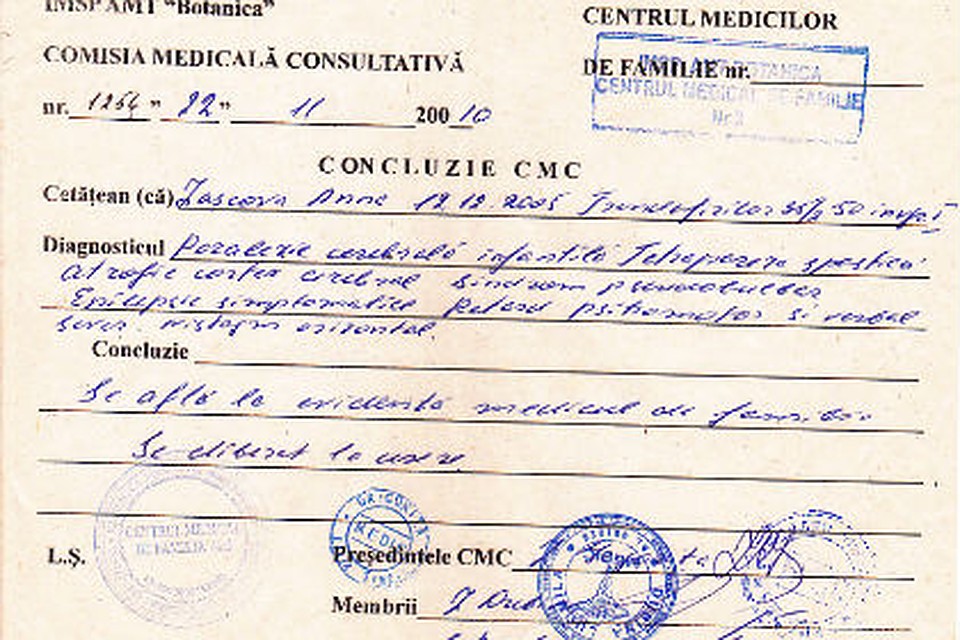 IMSP AMT "Botanica"
CENTRUL MEDICILOR
COMISIA MEDICALĂ CONSULTATIVĂ
DE FAMILIE nr.
IMSP AMT BOTANICA
CENTRUL MEDICAL DE FAMILIE
nr. 1264 " 22 " 11 200 10
CONCLUZIE CMC
Cetățean (că) Anna 12.12.2005
Diagnosticul Paralezie cerebrală infantilă Tetrapareza spastică
atrofie cortex cerebral Sindrom pseudobulbar
Epilepsie simptomatică Retard psihomotor și verbal
sever. nistagm orizontal.
Concluzie
Se află la evidență medicul de familie.
Se eliberat la cerere
L.Ș.
Președintele CMC
Membrii